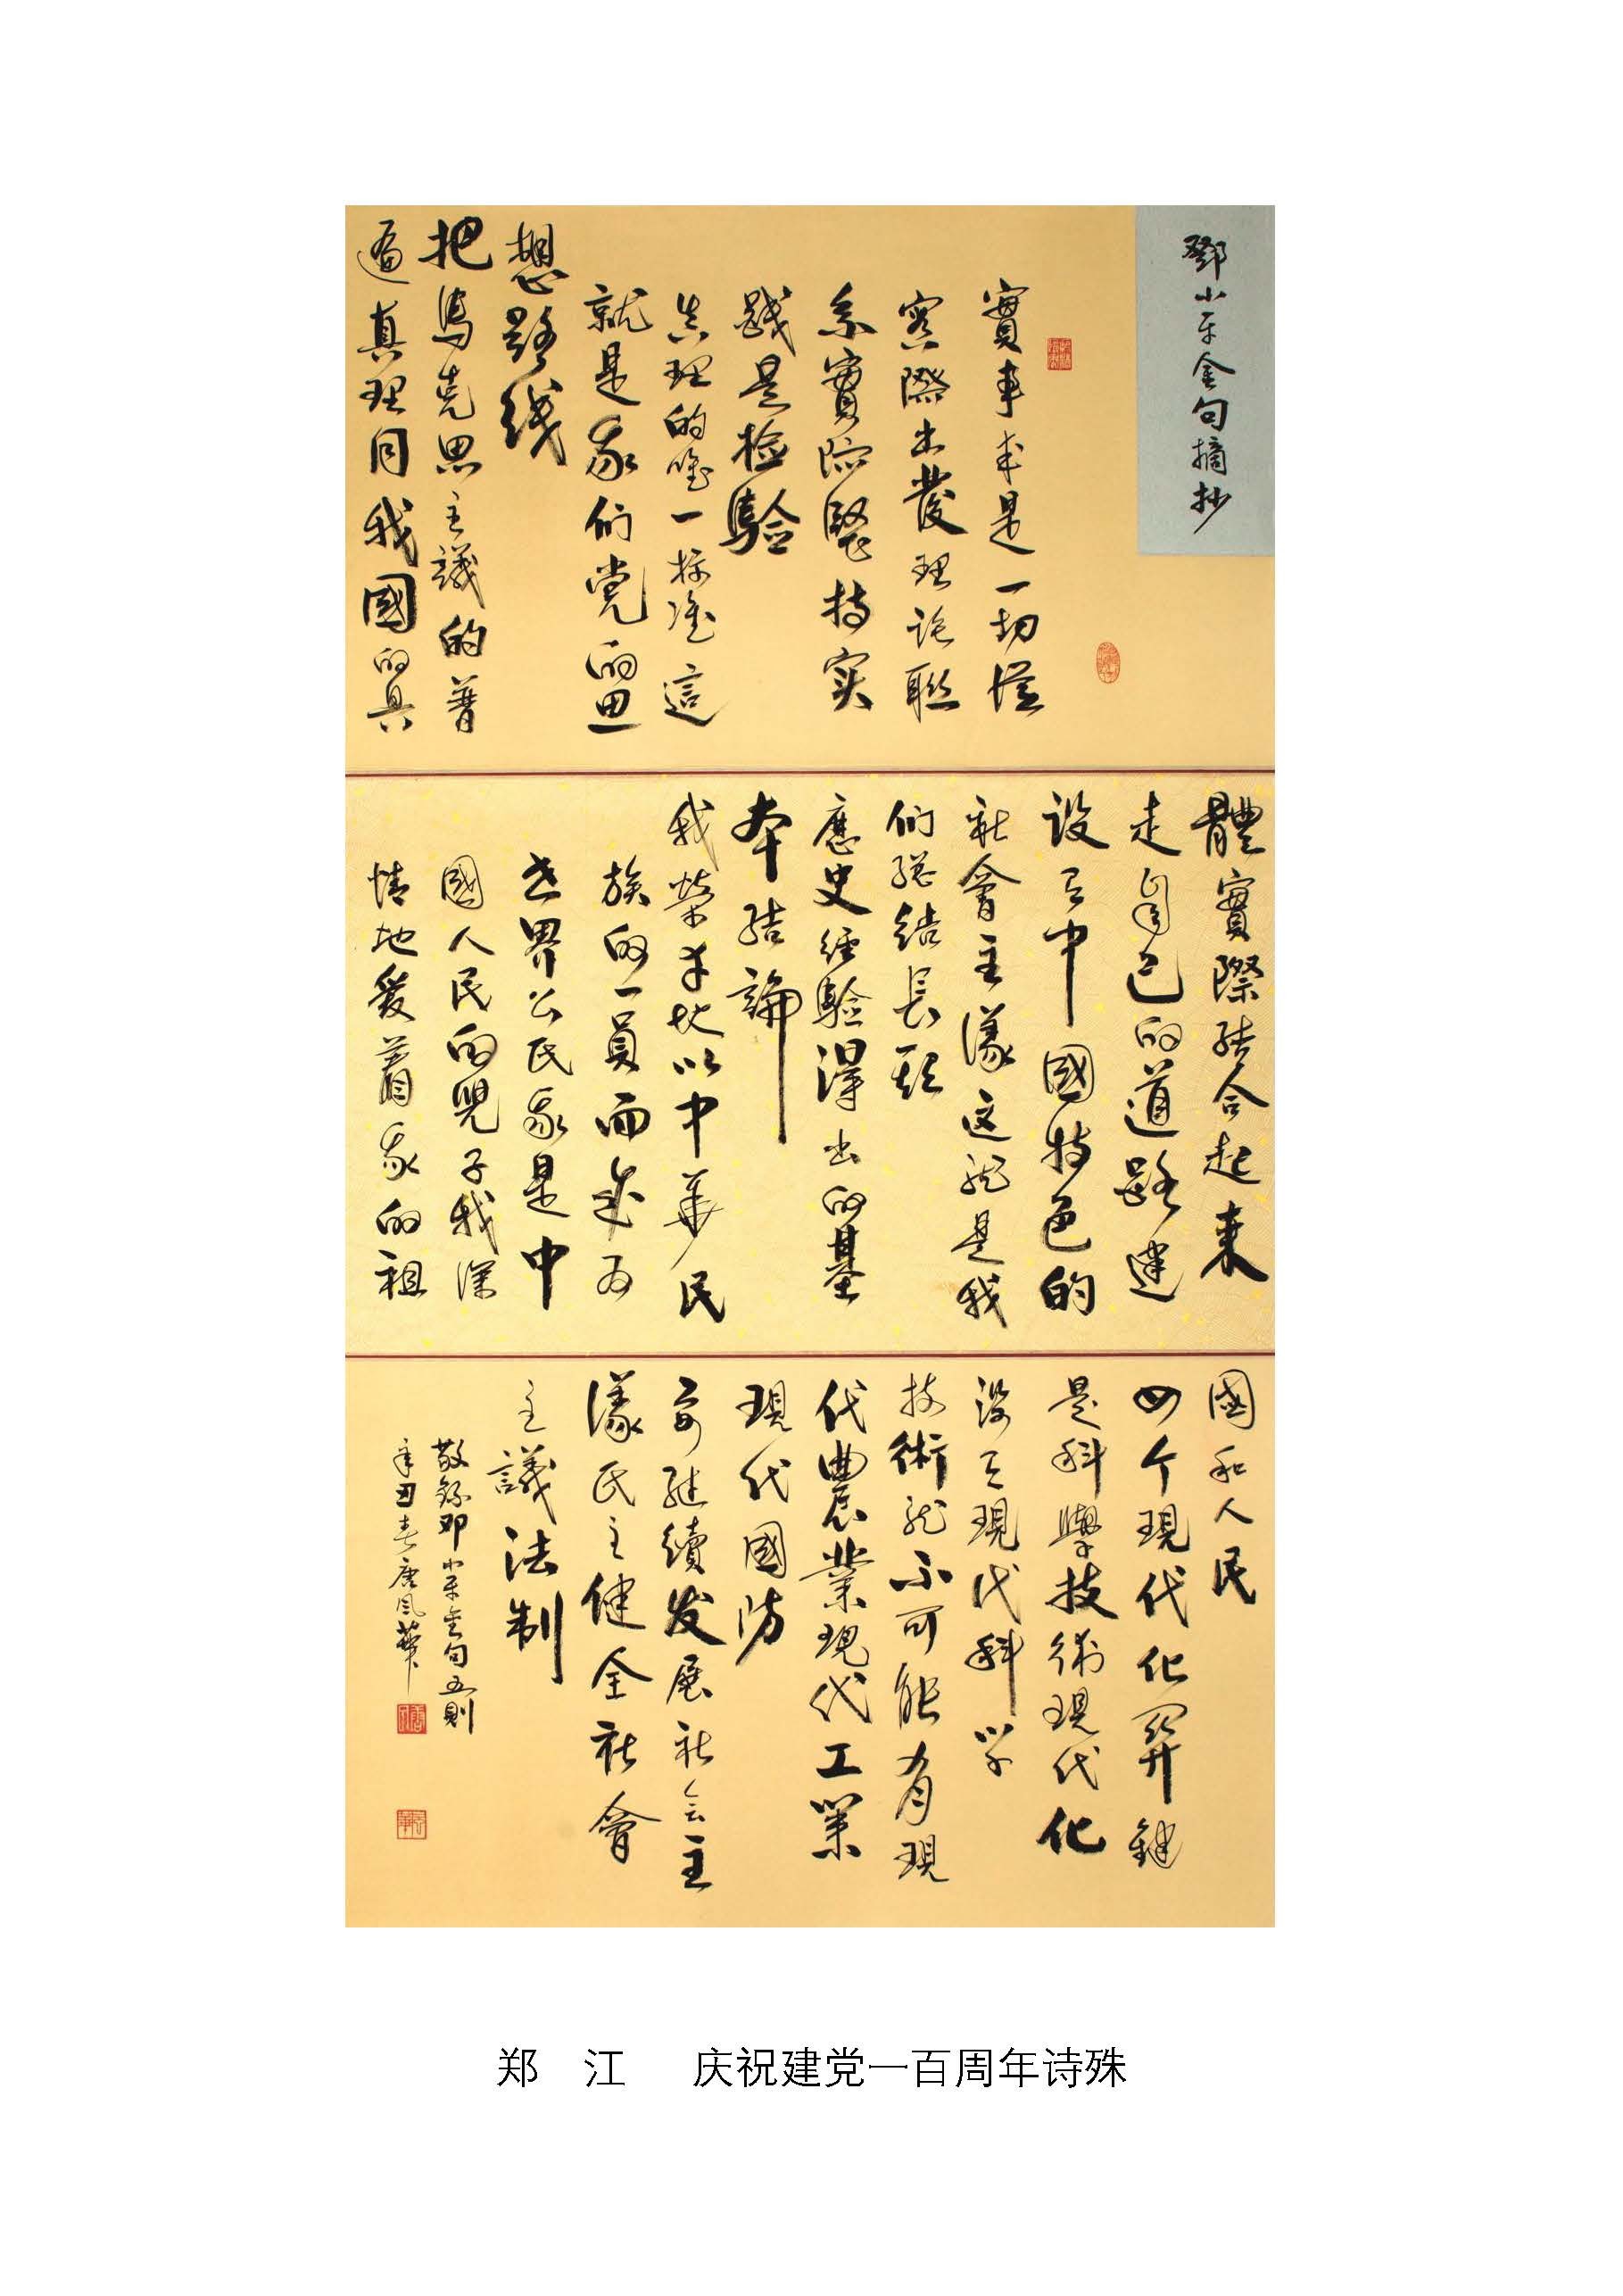 鄧小平金句摘抄
實事求是一切從
實際出發理論聯
系實際堅持实
践是检驗
真理的唯一标准這
就是我们党的思
想路线
把馬克思主議的普
遍真理同我國的具
體實際结合起来
走自己的道路建
设有中國特色的
社會主義这就是我
们總结長期
歷史经验得出的基
本结論
我榮幸地以中華民
族的一員而成为
世界公民我是中
國人民的兒子我深
情地爱着我的祖
國和人民
四个現代化関鍵
是科學技術現代化
没有現代科学
技術就不可能有現
代農業現代工業
現代國防
要继續发展社会主
義民主健全社會
主議法制
敬錄邓小平金句五則
辛丑春唐风華
郑 江 庆祝建党一百周年诗殊